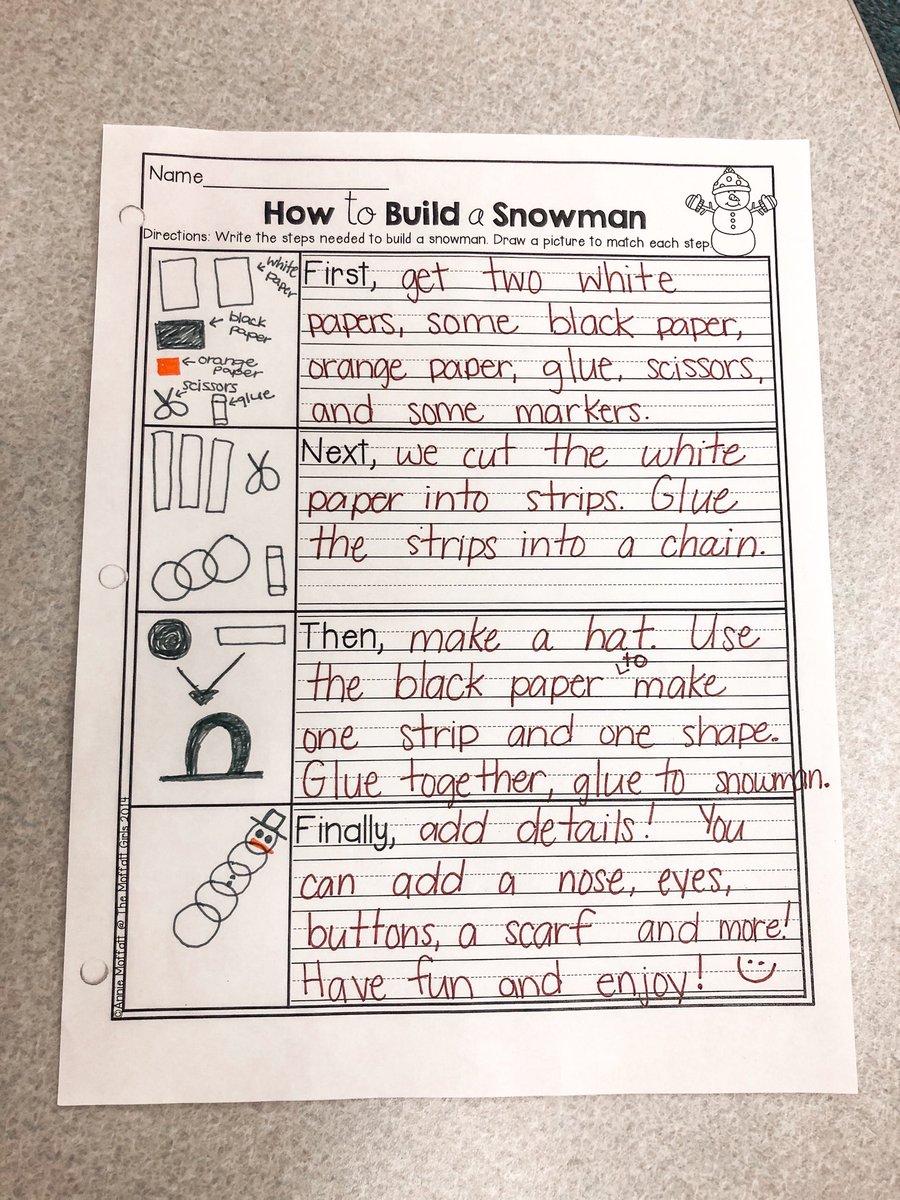 Name
How to Build a Snowman
Directions: Write the steps needed to build a snowman. Draw a picture to match each step
white
paper
black
paper
orange
paper
scissors
glue
First, get two white
papers, some black paper,
orange paper, glue, scissors,
and some markers.
Next, we cut the white
paper into strips. Glue
the strips into a chain.
Then, make a hat. Use
the black paper to make
one strip and one shape.
Glue together, glue to snowman.
Finally, add details! You
can add a nose, eyes,
buttons, a scarf and more!
Have fun and enjoy!
©Annie Moffatt @ The Moffatt Girls 2014